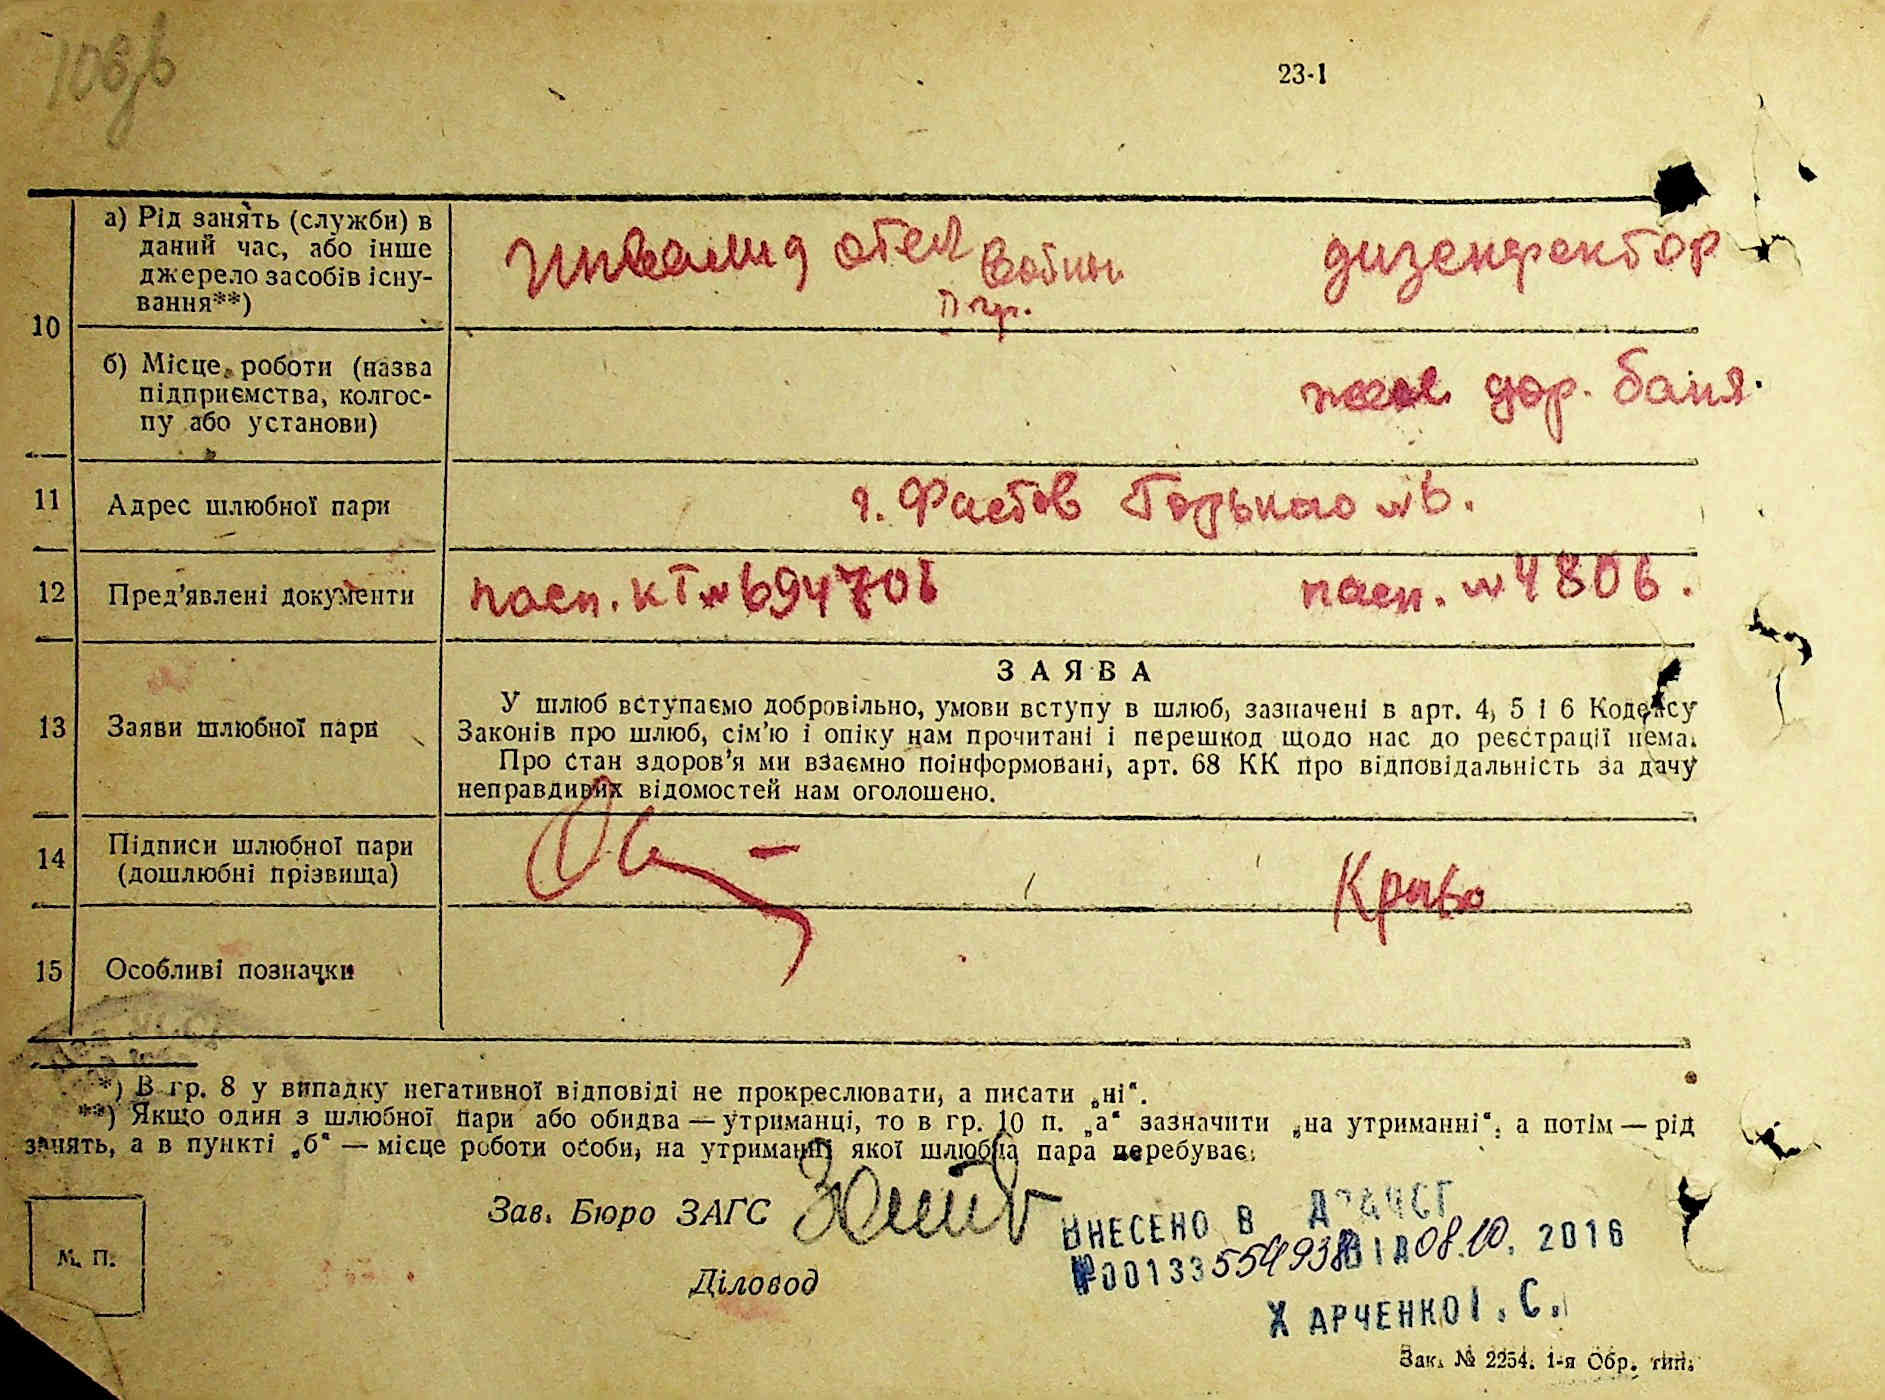 23-1
а) Рід занять (служби) в
даний час, або інше
джерело засобів існу-
вання**)
Инвалид отеч войны
II гр.
дизенфектор
10
б) Місце роботи (назва
підприємства, колгос-
пу або установи)
жел. дор. баня.
11 Адрес шлюбної пари г. Фастов Горького №6.
12 Пред'явлені документи пасп. КТ № 694706 пасп. № 4806.
ЗАЯВА
13 Заяви шлюбної пари
У шлюб вступаємо добровільно, умови вступу в шлюб, зазначені в арт. 4, 5 і 6 Кодексу
Законів про шлюб, сім'ю і опіку нам прочитані і перешкод щодо нас до реєстрації нема.
Про стан здоров'я ми взаємно поінформовані, арт. 68 КК про відповідальність за дачу
неправдивих відомостей нам оголошено.
14 Підписи шлюбної пари
(дошлюбні прізвища)
Криво
15 Особливі позначки
*) В гр. 8 у випадку негативної відповіді не прокреслювати, а писати „ні“.
**) Якщо один з шлюбної пари або обидва — утриманці, то в гр. 10 п. „а“ зазначити „на утриманні“, а потім — рід
занять, а в пункті „б“ — місце роботи особи, на утриманні якої шлюбна пара перебуває.
Зав. Бюро ЗАГС
М. П.
Діловод
ВНЕСЕНО В ДРАЦСГ
№00133554938 ВІД 08.10.2016
ХАРЧЕНКО І. С.
Зак. № 2254. 1-я Обр. тип.